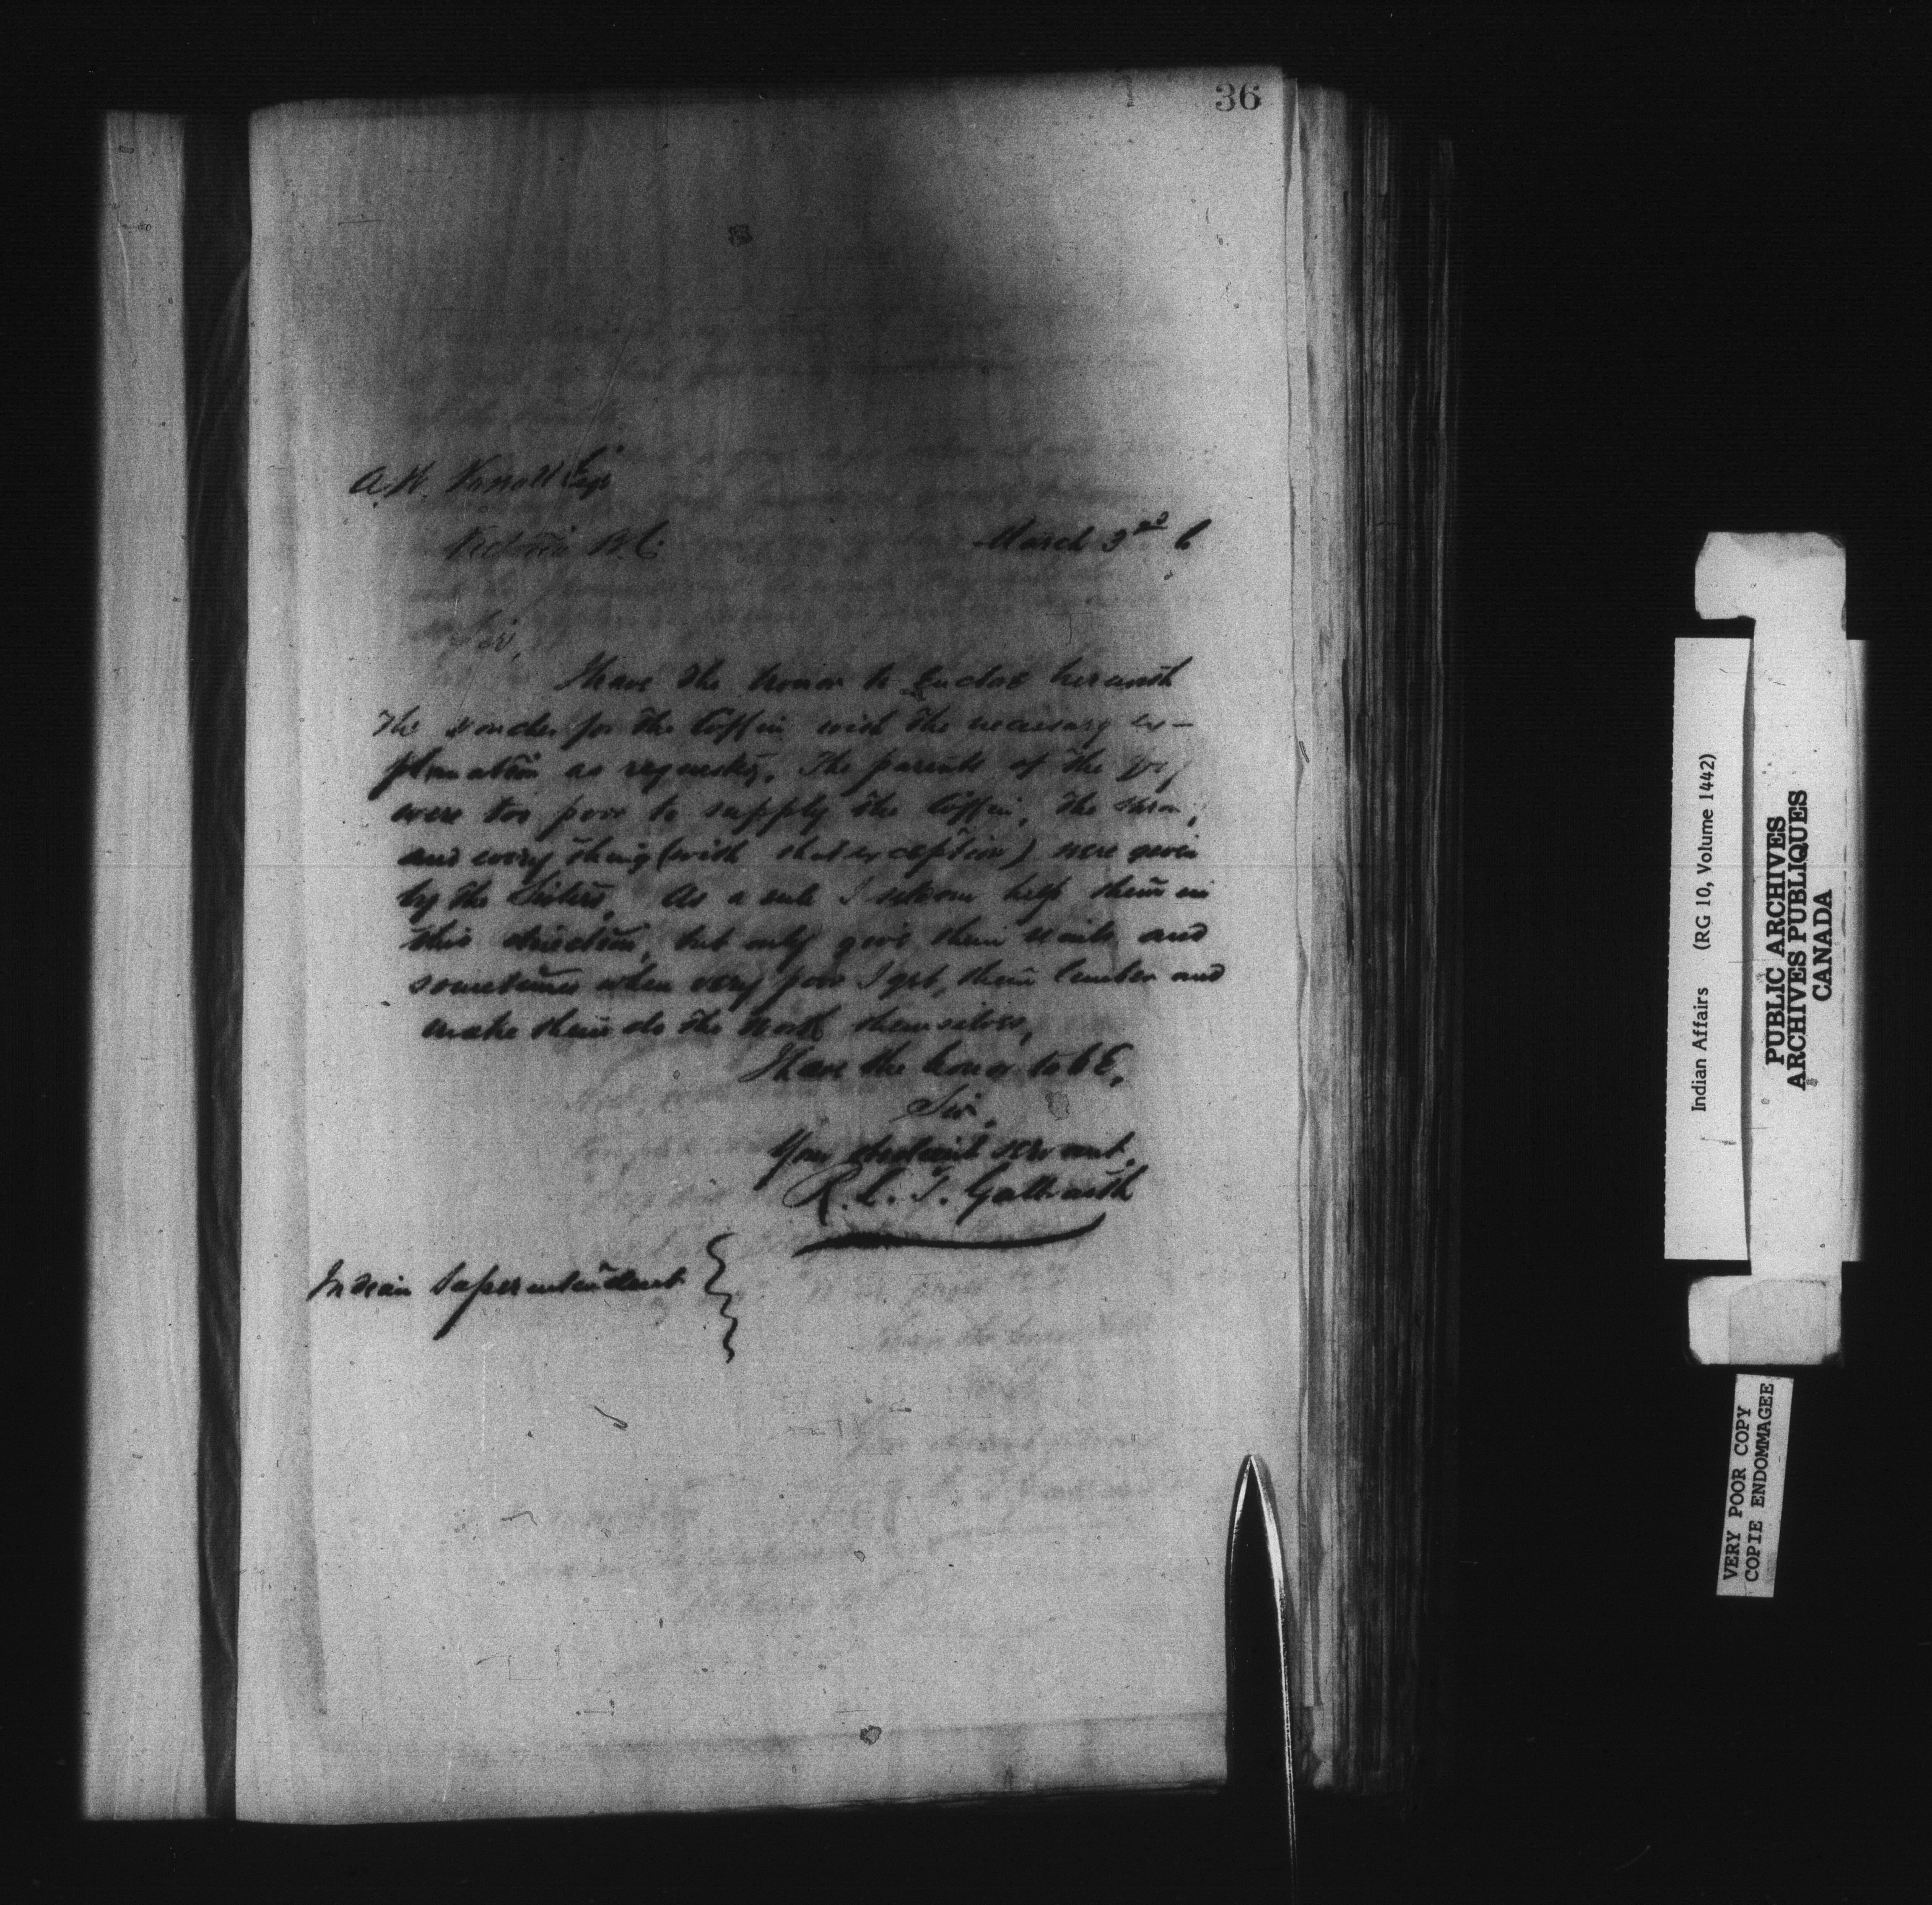 36
A. W. Vowell Esqr
Victoria B.C.
March 3rd 6
Sir,
I have the honor to Enclose herewith
the voucher for the Coffin with the necessary ex-
planation as requested. The parents of the
were too poor to supply the Coffin, the
and every thing (with that exception) were given
by the Sisters. As a rule I seldom help them in
this direction, but only give them nails and
sometimes when very poor I get them lumber and
make them do the work themselves,
I have the honor to bE,
Sir,
Your obedient servant,
R. L. T. Galbraith
Indian Superintendent
Indian Affairs (RG 10, Volume 1442)
PUBLIC ARCHIVES
ARCHIVES PUBLIQUES
CANADA
VERY POOR COPY
COPIE ENDOMMAGEE